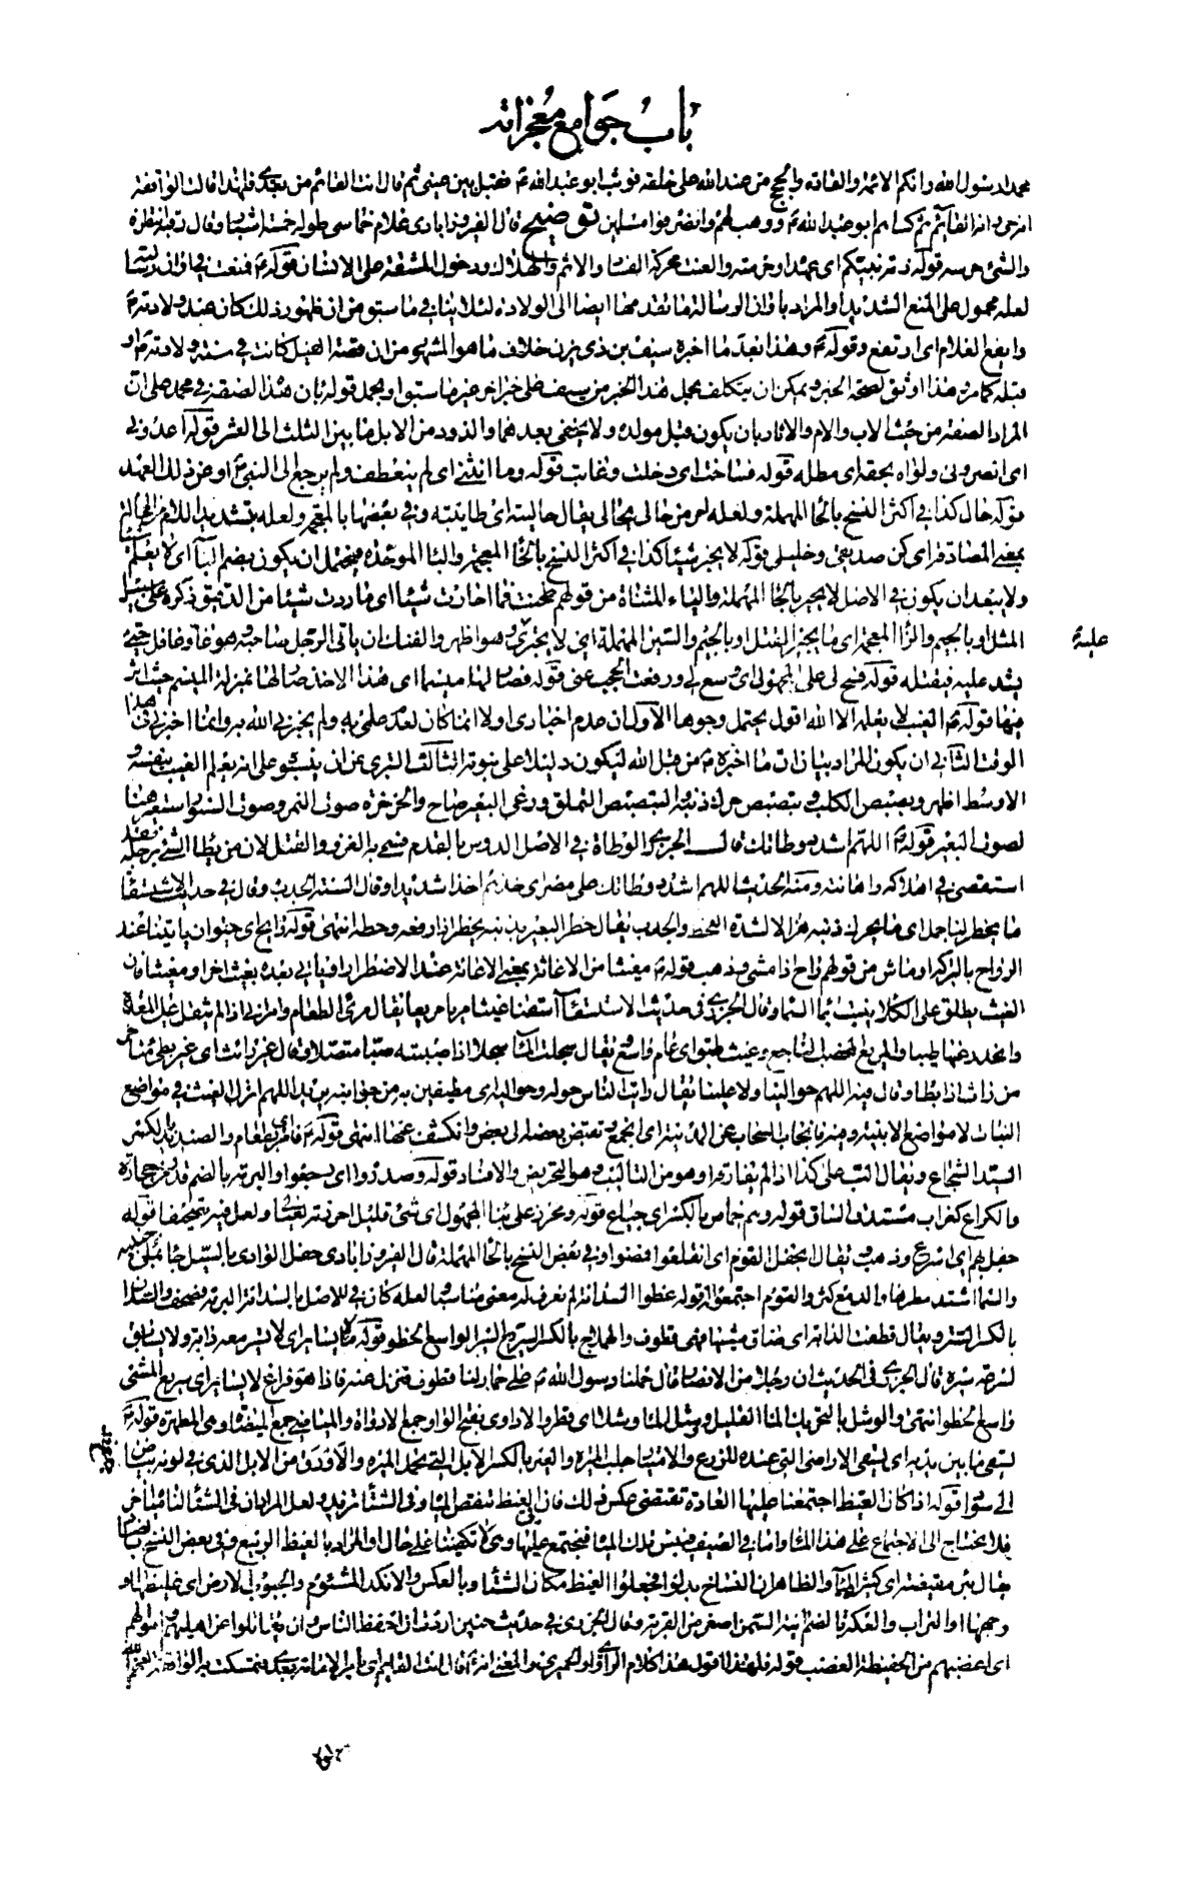 باب جوامع معجزاته
محمدا رسول الله وانكم الائمة والقادة والحجج من عند الله على خلقه فوثب ابو عبد الله ع فقبل بين عيني ثم قال انت القائم من بعدي فلهذا قالت الواقفة
انه حي وانه القائم ثم كساهم ابو عبد الله ع ووهب لهم وانصرفوا مسلمين توضيح قال الفيروزابادي غلام خماسي طوله خمسة اشبار وقال رقبه انتظره
والشئ حرسه قوله ذمة نبيكم اي عهده او حرمته والعنت محركة الفساد والاثم والهلاك ودخول المشقة على الانسان قوله ع فمنعت في اوان رسالته
لعله محمول على المنع الشديد او المراد باوان الرسالة ما تقدمها ايضا الى الولادة لئلا ينافي ما سبق من ان ظهور ذلك كان عند ولادته ع
وايفع الغلام اي ارتفع وقوله ع وهذا بعد ما اخبره سيف بن ذي يزن خلاف ما هو المشهور من ان قصة الفيل كانت في سنة ولادته ع او
قبله كما مر وهذا اوثق لصحة الخبر ويمكن ان يتكلف بحمل هذا الخبر من سيف على خبر اخر غير ما سبق او يحمل قوله بان هذا الصفة في محمد على ان
المراد الصفة من حيث الاب والام والاثار بان يكون قبل مولده ولا يخفى بعدهما والذود من الابل ما بين الثلث الى العشر قوله اعدوني
اي انصروني ولواه بحقه اي مطله قوله فساخت اي دخلت وغابت قوله وما انثنى اي لم ينعطف ولم يرجع الى النبي ص او عن ذلك العهد
قوله خال كذا في اكثر النسخ بالخاء المهملة ولعله امر من خالى يخالي يقال حاليته اي طايبته وفي بعضها بالمعجمة ولعله بتشديد اللام من المخالة
بمعنى المصادقة اي كن صديقي وخليلي قوله لا يخبر شيئا كذا في اكثر النسخ بالخاء المعجمة والباء الموحدة فيحتمل ان يكون بضم الباء اي لا يعلم
ولا يبعد ان يكون في الاصل لا يحير بالحاء المهملة والياء المثناة من قولهم طحنت فما احارت شيئا اي ما ردت شيئا من الدقيق ذكره على سبيل
المثل او بالجيم والزاء المعجمة اي ما يجيز القتل او بالجيم والسين المهملة اي لا يجتري وهو اظهر والفتك ان ياتي الرجل صاحبه وهو غار غافل حتى
يشد عليه فيقتله قوله فسح لي على المجهول اي وسع لي ورفعت الحجب عني قوله فصار لها ميسما اي هذا الاخذ صار لها بمنزلة الميسم حيث اثر
فيها قوله ع الغيب لا يعلمه الا الله اقول يحتمل وجوها الاول ان عدم اخباري اولا انما كان لعدم علمي به ولم يخبرني الله به وانما اخبرني في هذا
الوقت الثاني ان يكون المراد بيان ان ما اخبره ع من قبل الله ليكون دليلا على نبوته الثالث التبري عن ان ينسبوه على انه يعلم الغيب بنفسه و
الاوسط اظهر وبصبص الكلب وتبصبص حرك ذنبه والتبصبص التملق ورغى البعير صاح والخرخرة صوت النمر وصوت السنور استعير هنا
لصوت البعير قوله ع اللهم اشدد وطاتك قال الجزري الوطاة في الاصل الدوس بالقدم فسمي به الغزو والقتل لان من يطأ الشئ برجله فقد
استقصى في اهلاكه واهانته ومنه الحديث اللهم اشدد وطاتك على مضر اي خذهم اخذا شديدا وقال السنة الجدب وقال في حديث الاستسقاء
ما يخطر لنا جمل اي ما يحرك ذنبه هزالا لشدة القحط والجدب يقال خطر البعير بذنبه يخطر اذا رفعه وحطه انتهى قوله رايح اي حيوان ياتينا عند
الرواح بالبركة او ماش من قولهم راح اذا مشى وذهب قوله ع مغيثا من الاغاثة بمعنى الاعانة عند الاضطرار او ياتي بعده بغيث اخر او معشبا فان
الغيث يطلق على الكلأ ينبت بماء السماء وقال الجزري في حديث الاستسقاء اسقنا غيثا مريئا مريعا يقال مرئ الطعام وامراني اذا لم يثقل على المعدة
وانحدر عنها طيبا والمريع المخصب الناجع وغيث طبق اي عام واسع يقال سجلت الماء سجلا اذا صببته صبا متصلا وقال غير رائث اي غير بطيئ متاخر
من راث اذا ابطا وقال فيه اللهم حوالينا ولا علينا يقال رايت الناس حوله وحواليه اي مطيفين به من جوانبه يريد اللهم انزل الغيث في مواضع
النبات لا مواضع الابنية ومنه فانجاب السحاب عن المدينة اي انجمع وتقبض بعضه الى بعض وانكشف عنها انتهى قوله ع فامر اي بطعام والصنديد بالكسر
السيد الشجاع ويقال الب على كذا اذا لم يفارقه او هو من التاليب وهو التحريض والافساد قوله وصدروا اي رجعوا والبرمة بالضم قدر من حجارة
والكراع كغراب مستدق الساق قوله وهم خماص بالكسر اي جياع قوله ونحرز على بناء المجهول اي شئ قليل احرزته لعيشنا ولعل فيه تصحيفا قوله
جفل بهم اي اسرع وذهب يقال انجفل القوم اي انقلعوا فمضوا وفي بعض النسخ بالحاء المهملة قال الفيروزابادي حفل الوادي بالسيل جاء بملئ جنبيه
والسماء اشتد مطرها والدمع كثر والقوم اجتمعوا قوله غطوا السدانة لم نعرف له معنى مناسبا لعله كان في الاصل بالسدانة البرمة فصحف والسدان
بالكسر الستر ويقال قطفت الدابة اي ضاق مشيها فهي قطوف والهملاج بالكسر السريع السير الواسع الخطو قوله ما يساير اي لا تسير معه دابة ولا يسابق
لسرعة سيره قال الجزري في الحديث ان رجلا من الانصار قال حملنا رسول الله ع على حمار لنا قطوف فنزل عنه فاذا هو فراغ لا يساير اي سريع المشي
واسع الخطو انتهى والوشل بالتحريك الماء القليل ووشل الماء وشلا اي قطر والاداوى بفتح الواو جمع الاداوة والميافئ جمع الميضاة وهي المطهرة قوله ع
ليسقي ما بين يديه اي ليسقي الاراضي التي عنده للزرع والامتيار جلب الميرة والعير بالكسر الابل التي تحمل الميرة والاورق من الابل الذي في لونه بياض
الى سواد قوله اذا كان القيظ اجتمعنا عليها العادة تقتضي عكس ذلك فان في القيظ تنقص المياه وفي الشتاء تزيد ولعل المراد ان في الشتاء لنا مياه اخر
فلا نحتاج الى الاجتماع على هذا الماء واما في الصيف فييبس تلك المياه فنجتمع عليها وهي لا تكفينا على حال او المراد بالقيظ الربيع وفي بعض النسخ
والظاهر ان النساخ بدلوا فجعلوا القيظ مكان الشتاء وبالعكس والانكد المشئوم والجبوب الارض اي غليظها او
وجهها او التراب والعكة بالضم انية السمن اصغر من القربة وقال الجزري في حديث حنين اردت ان احفظ الناس وان يقاتلوا عن اهليهم واموالهم
اي اغضبهم من الحفيظة الغضب قوله فلهذا اقول هذا كلام الراوي او الحميري والمعنى انه ع قال انت القائم اي بامر الامامة بعدي فتمسكت به الواقفة
علية